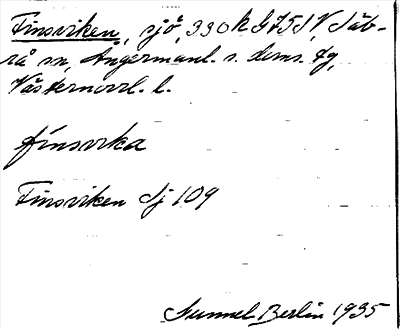 Finsviken, sjö, 330 k G 151 V Säb-
rå sn, Ångermanl. s. doms. dg,
Västernorrl. l.
finsvika
Finsviken Sj 109
Berlin 1935